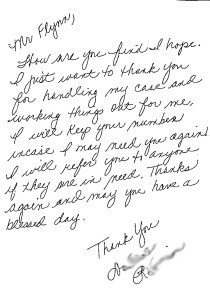 Mr Flynn,
How are you find I hope.
I just want to thank you
for handling my case and
working things out for me.
I will keep your number
incase I may need you again
I will refer you to anyone
if they are in need. Thanks
again and may you have a
blessed day.
Thank You